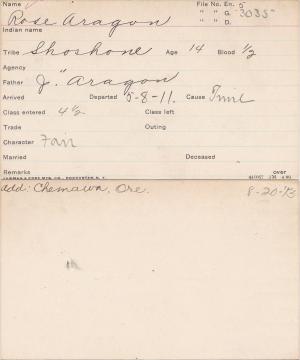 Name File No. En. 5
Rose Aragon " " G. 3035
Indian name
Tribe Shoshone Age 14 Blood 1/2
Agency
Father J. " Aragon
Arrived Departed 5-8-11. Cause Time
Class entered 4 1/2 Class left
Trade Outing
Character Fair
Married Deceased
Remarks over
add: Chemawa, Ore. 8-20-13